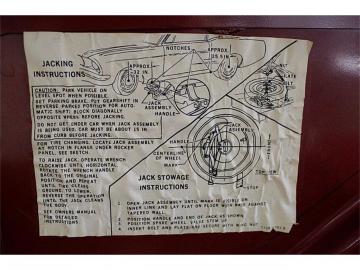 JACKING
INSTRUCTIONS
NOTCHES
APPROX.
32 IN.
APPROX.
NUT
PLATE
BOLT
CAUTION: PARK VEHICLE ON
LEVEL SPOT WHEN POSSIBLE.
SET PARKING BRAKE. PUT GEARSHIFT IN
REVERSE POSITION OR PARK POSITION FOR AUTO-
MATIC SHIFT. BLOCK DIAGONALLY
OPPOSITE WHEEL BEFORE JACKING.
JACK
ASSEMBLY
HANDLE
DO NOT GET UNDER CAR WHEN JACK ASSEMBLY
IS BEING USED. CAR MUST BE ABOUT 15 IN
FROM CURB BEFORE JACKING.
FOR TIRE CHANGING, LOCATE JACK ASSEMBLY
AT NOTCH IN FLANGE UNDER ROCKER
PANEL. SEE SKETCH.
TO RAISE JACK, OPERATE WRENCH
CLOCKWISE UNTIL HORIZONTAL.
ROTATE THE WRENCH HANDLE
BACK TO THE ORIGINAL
POSITION AND REPEAT
UNTIL TIRE CLEARS
GROUND. TO LOWER,
REVERSE THE WRENCH
UNTIL THE JACK CLEARS
THE BODY.
SEE OWNERS MANUAL
FOR DETAILED
INSTRUCTIONS.
JACK
ASSEMBLY
HANDLE
CENTERLINE OF
WHEEL
MARK
TOP VIEW
STOP
JACK STOWAGE
INSTRUCTIONS
1 OPEN JACK ASSEMBLY UNTIL MARK IS VISIBLE ON
INNER LINK AND LAY FLAT ON FLOOR WITH BASE AGAINST
TAPERED WALL.
2 POSITION HANDLE AND END OF JACK AS SHOWN
3 POSITION SPARE WHEEL, VALVE STEM UP
4 INSERT BOLT AND PLATE AND SECURE WITH WING NUT